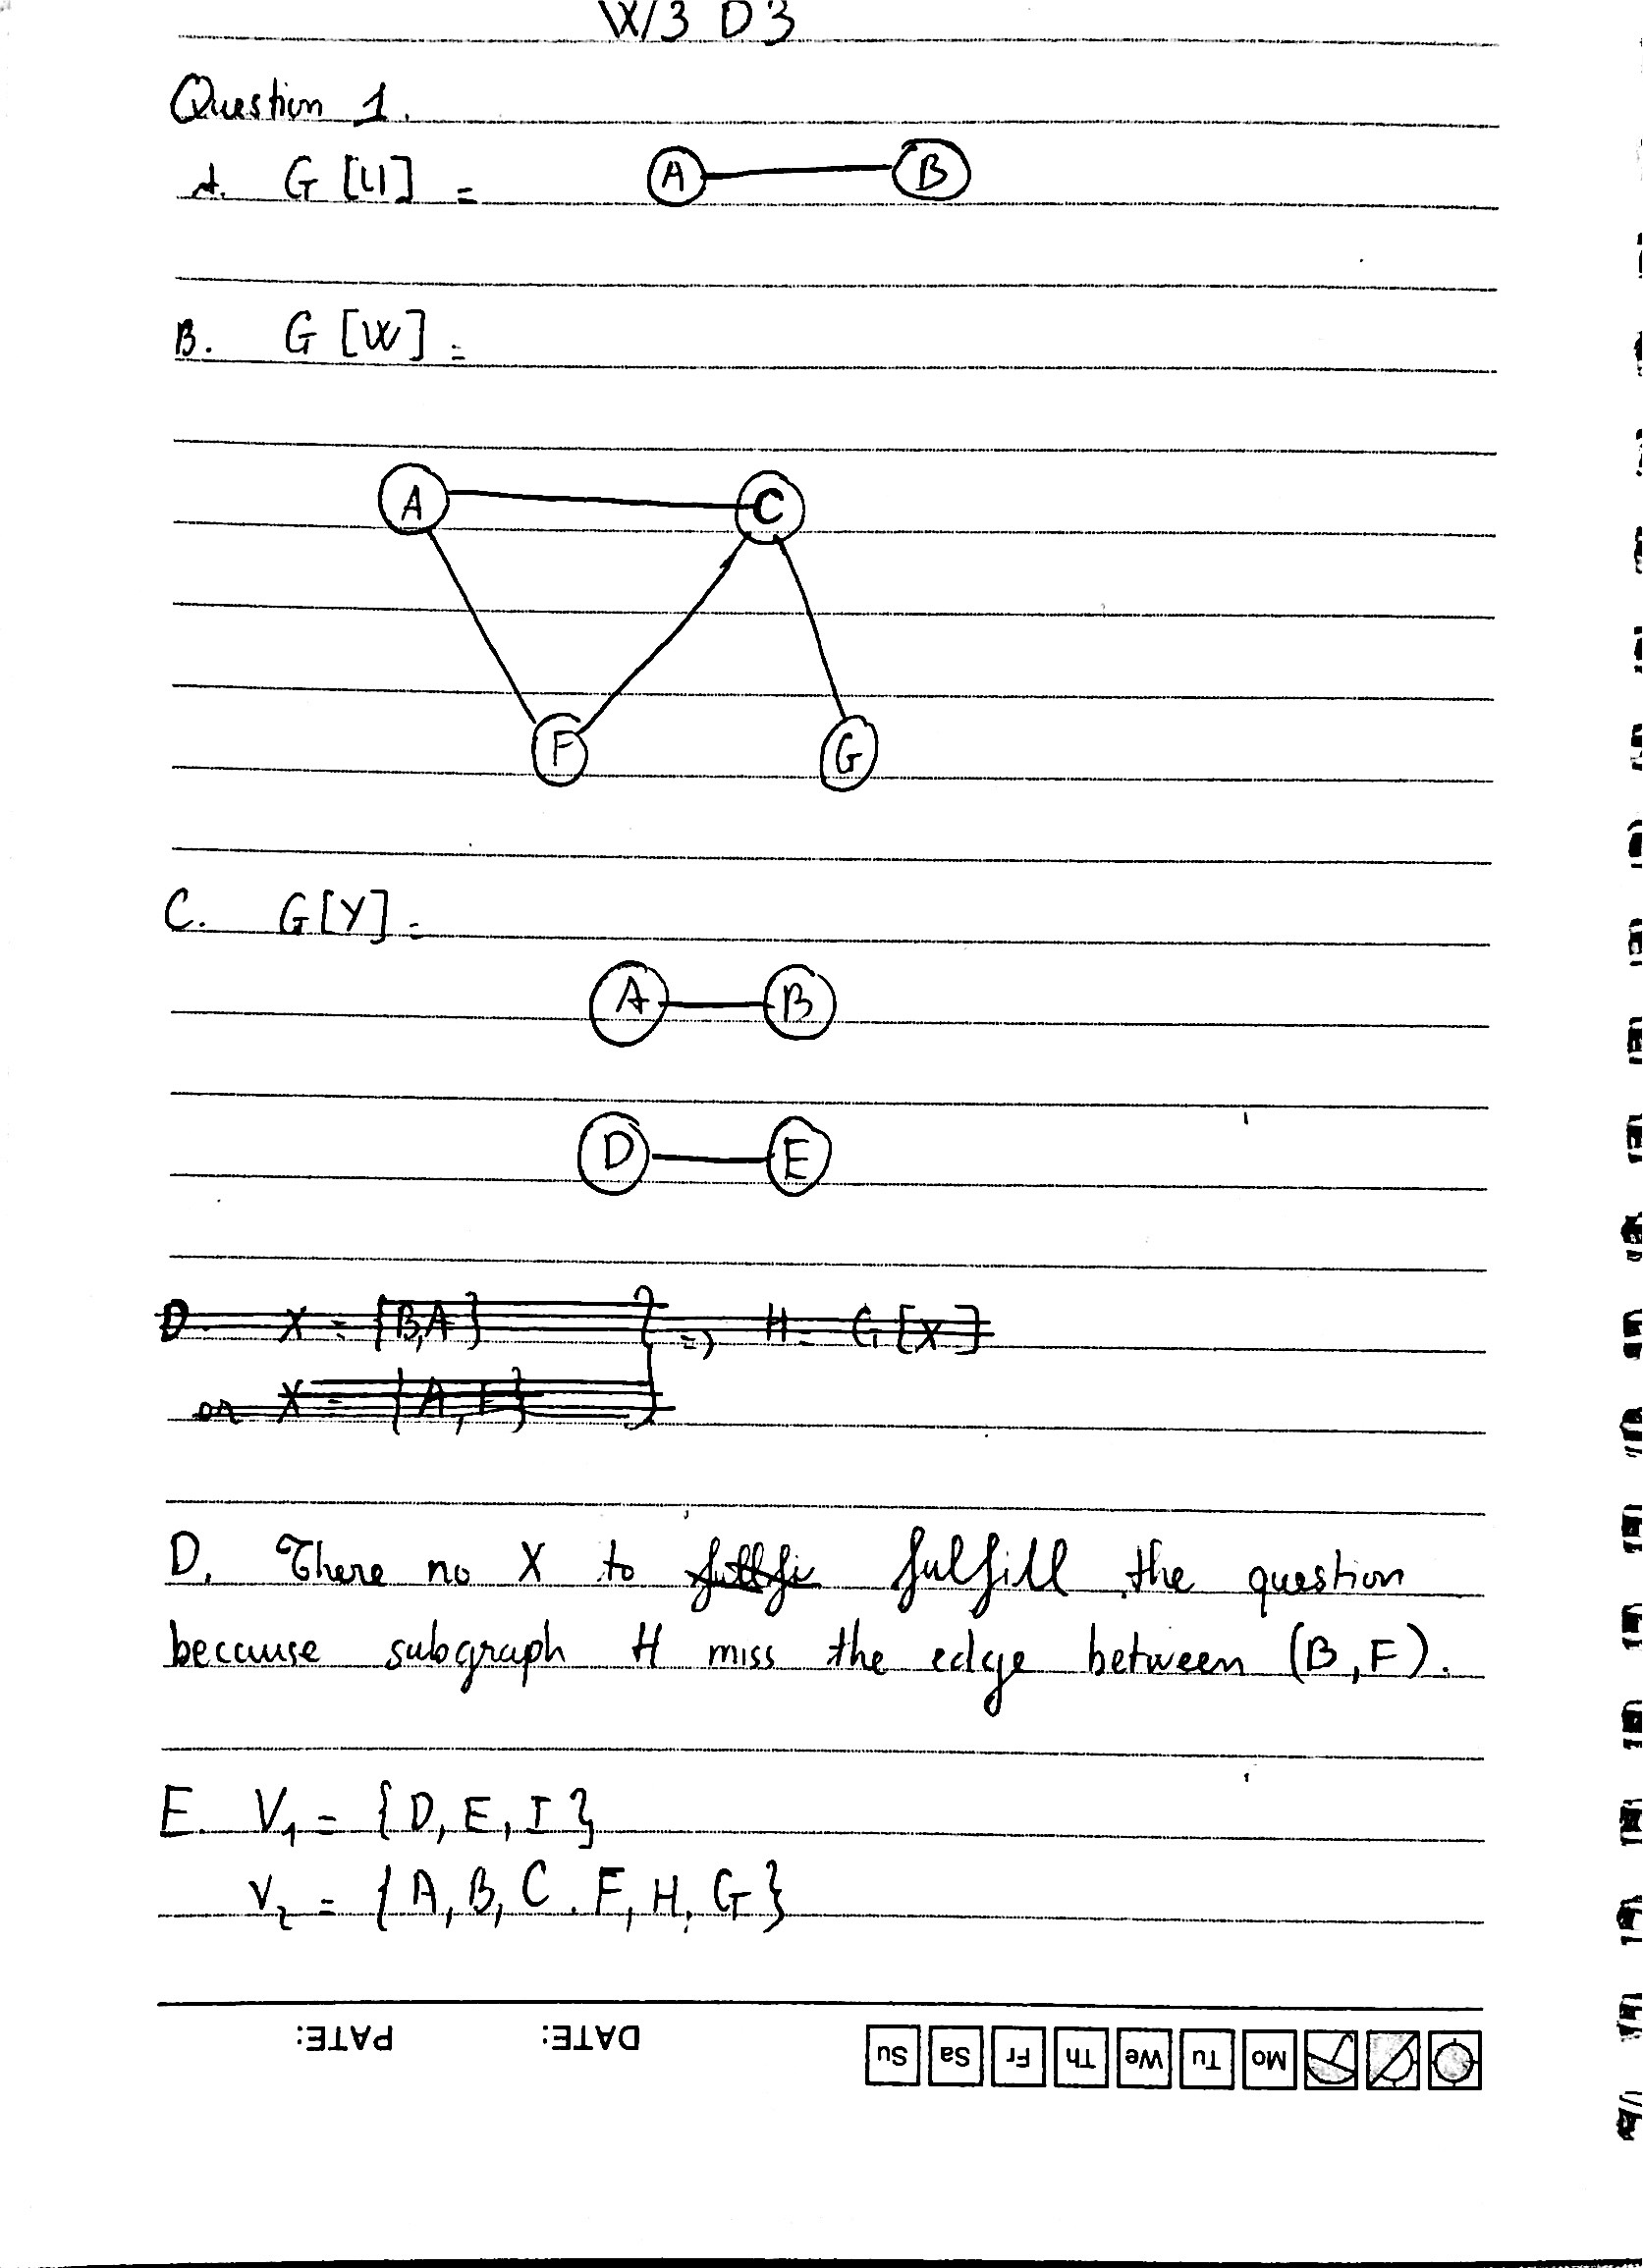 W3 D3
Question 1.
A. G [U] =
A B
B. G [W] =
A C
F G
C. G[Y] =
A B
D E
D. X = {B,A} } => H = G[X]
or X = {A, F}
D. There no X to fulfill the question
because subgraph H miss the edge between (B,F).
E. V1 = {D, E, I}
V2 = {A, B, C, F, H, G}
PATE: DATE: Su Sa Fr Th We Tu Mo